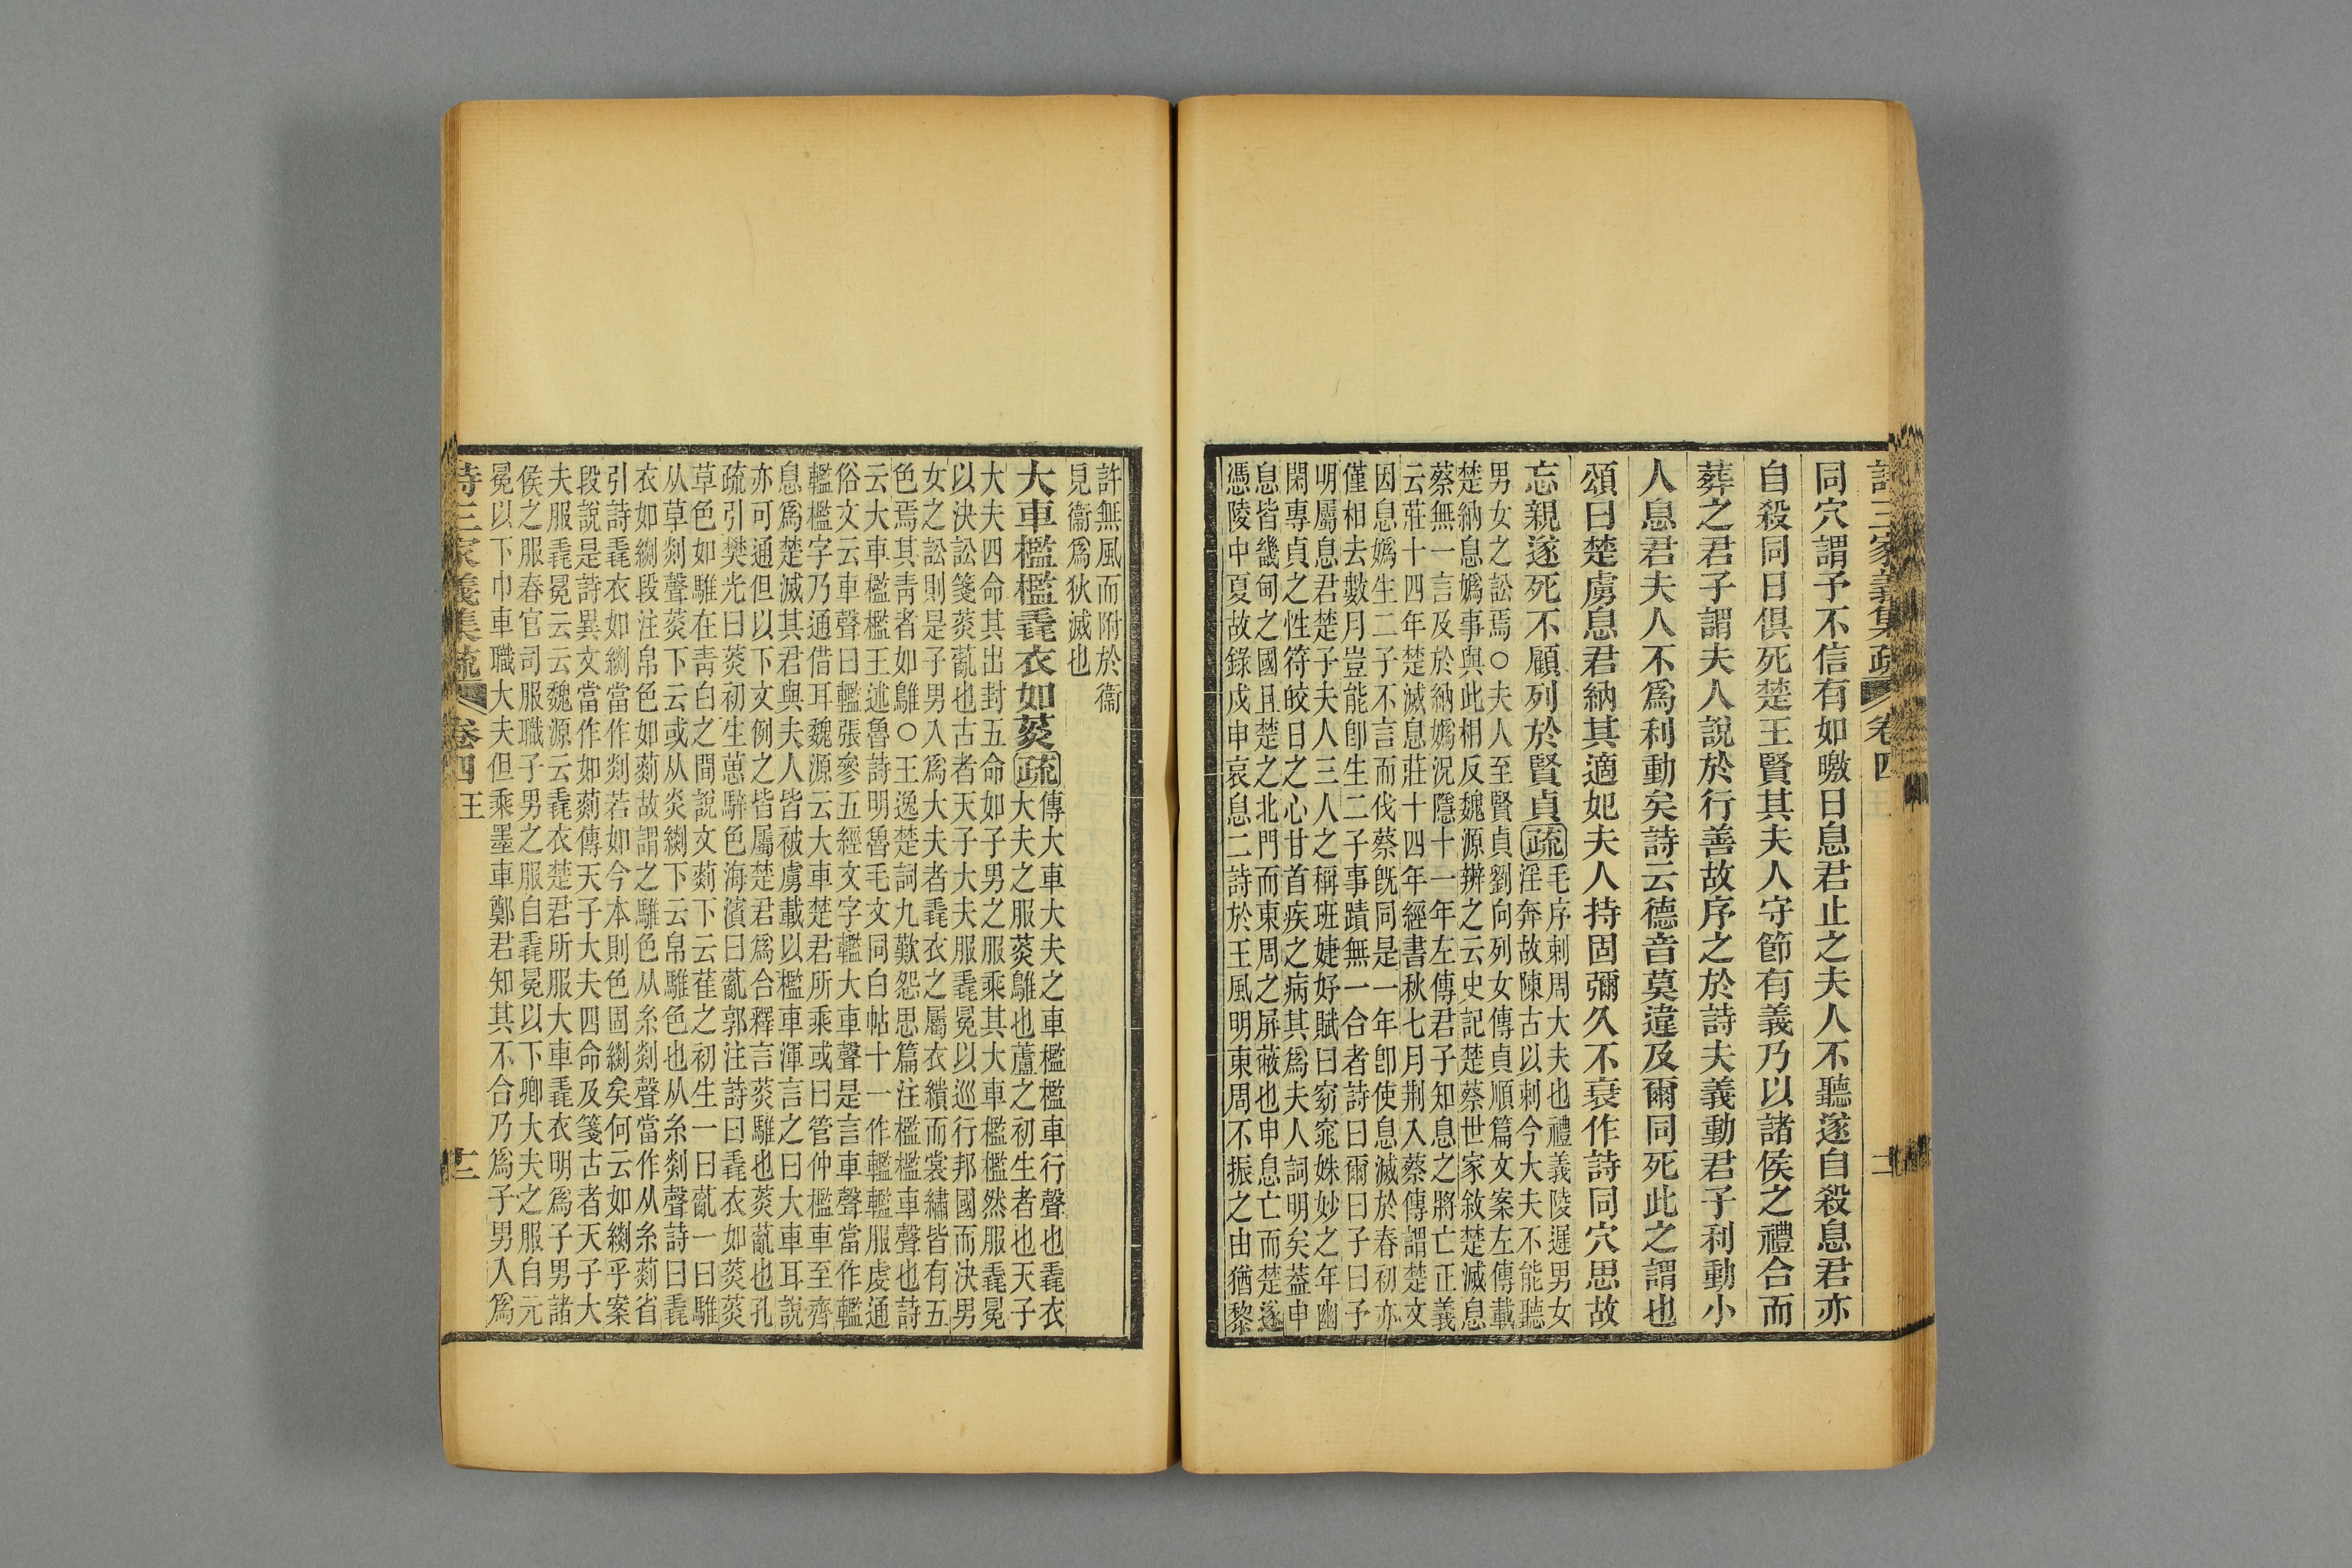 詩三家義集疏 卷四
同穴謂予不信有如曒日息君止之夫人不聽遂自殺息君亦
自殺同日俱死楚王賢其夫人守節有義乃以諸侯之禮合而
葬之君子謂夫人說於行善故序之於詩夫義動君子利動小
人息君夫人不爲利動矣詩云德音莫違及爾同死此之謂也
頌曰楚虜息君納其適妃夫人持固彌久不衰作詩同穴思故
忘親遂死不顧列於賢貞疏
毛序刺周大夫也禮義陵遲男女
淫奔故陳古以刺今大夫不能聽
男女之訟焉○夫人至賢貞劉向列女傳貞順篇文案左傳載
楚納息嬀事與此相反魏源辨之云史記楚蔡世家敘楚滅息
蔡無一言及於納嬀況隱十一年左傳君子知息之將亡正義
云莊十四年楚滅息莊十四年經書秋七月荆入蔡傳謂楚文
因息嬀生二子不言而伐蔡旣同是一年卽使息滅於春初亦
僅相去數月豈能卽生二子事蹟無一合者詩曰爾曰子曰予
明屬息君楚子夫人三人之稱班婕妤賦曰窈窕姝妙之年幽
閑專貞之性符皎日之心甘首疾之病其爲夫人詞明矣葢申
息皆畿甸之國且楚之北門而東周之屏蔽也申息亡而楚遂
憑陵中夏故錄戍申哀息二詩於王風明東周不振之由猶黎
許無風而附於衞
見衞爲狄滅也
大車檻檻毳衣如菼疏
傳大車大夫之車檻檻車行聲也毳衣
大夫之服菼鵻也蘆之初生者也天子
大夫四命其出封五命如子男之服乘其大車檻檻然服毳冕
以決訟箋菼薍也古者天子大夫服毳冕以巡行邦國而決男
女之訟則是子男入爲大夫者毳衣之屬衣繢而裳繡皆有五
色焉其靑者如鵻○王逸楚詞九歎怨思篇注檻檻車聲也詩
云大車檻檻王述魯詩明魯毛文同白帖十一作轞轞服虔通
俗文云車聲曰轞張參五經文字轞大車聲是言車聲當作轞
轞檻字乃通借耳魏源云大車楚君所乘或曰管仲檻車至齊
息爲楚滅其君與夫人皆被虜載以檻車渾言之曰大車耳說
亦可通但以下文例之皆屬楚君爲合釋言菼騅也菼薍也孔
疏引樊光曰菼初生葸騂色海濱曰薍郭注詩曰毳衣如菼菼
草色如騅在靑白之間說文䓞下云萑之初生一曰薍一曰騅
从草剡聲菼下云或从炎緂下云帛騅色也从糸剡聲詩曰毳
衣如緂段注帛色如䓞故謂之騅色从糸剡聲當作从糸䓞省
引詩毳衣如緂當作剡若如今本則色固緂矣何云如緂乎案
段說是詩異文當作如䓞傳天子大夫四命及箋古者天子大
夫服毳冕云云魏源云毳衣楚君所服大車毳衣明爲子男諸
侯之服春官司服職子男之服自毳冕以下卿大夫之服自元
冕以下巾車職大夫但乘墨車鄭君知其不合乃爲子男入爲
詩三家義集疏 卷四 王 十二